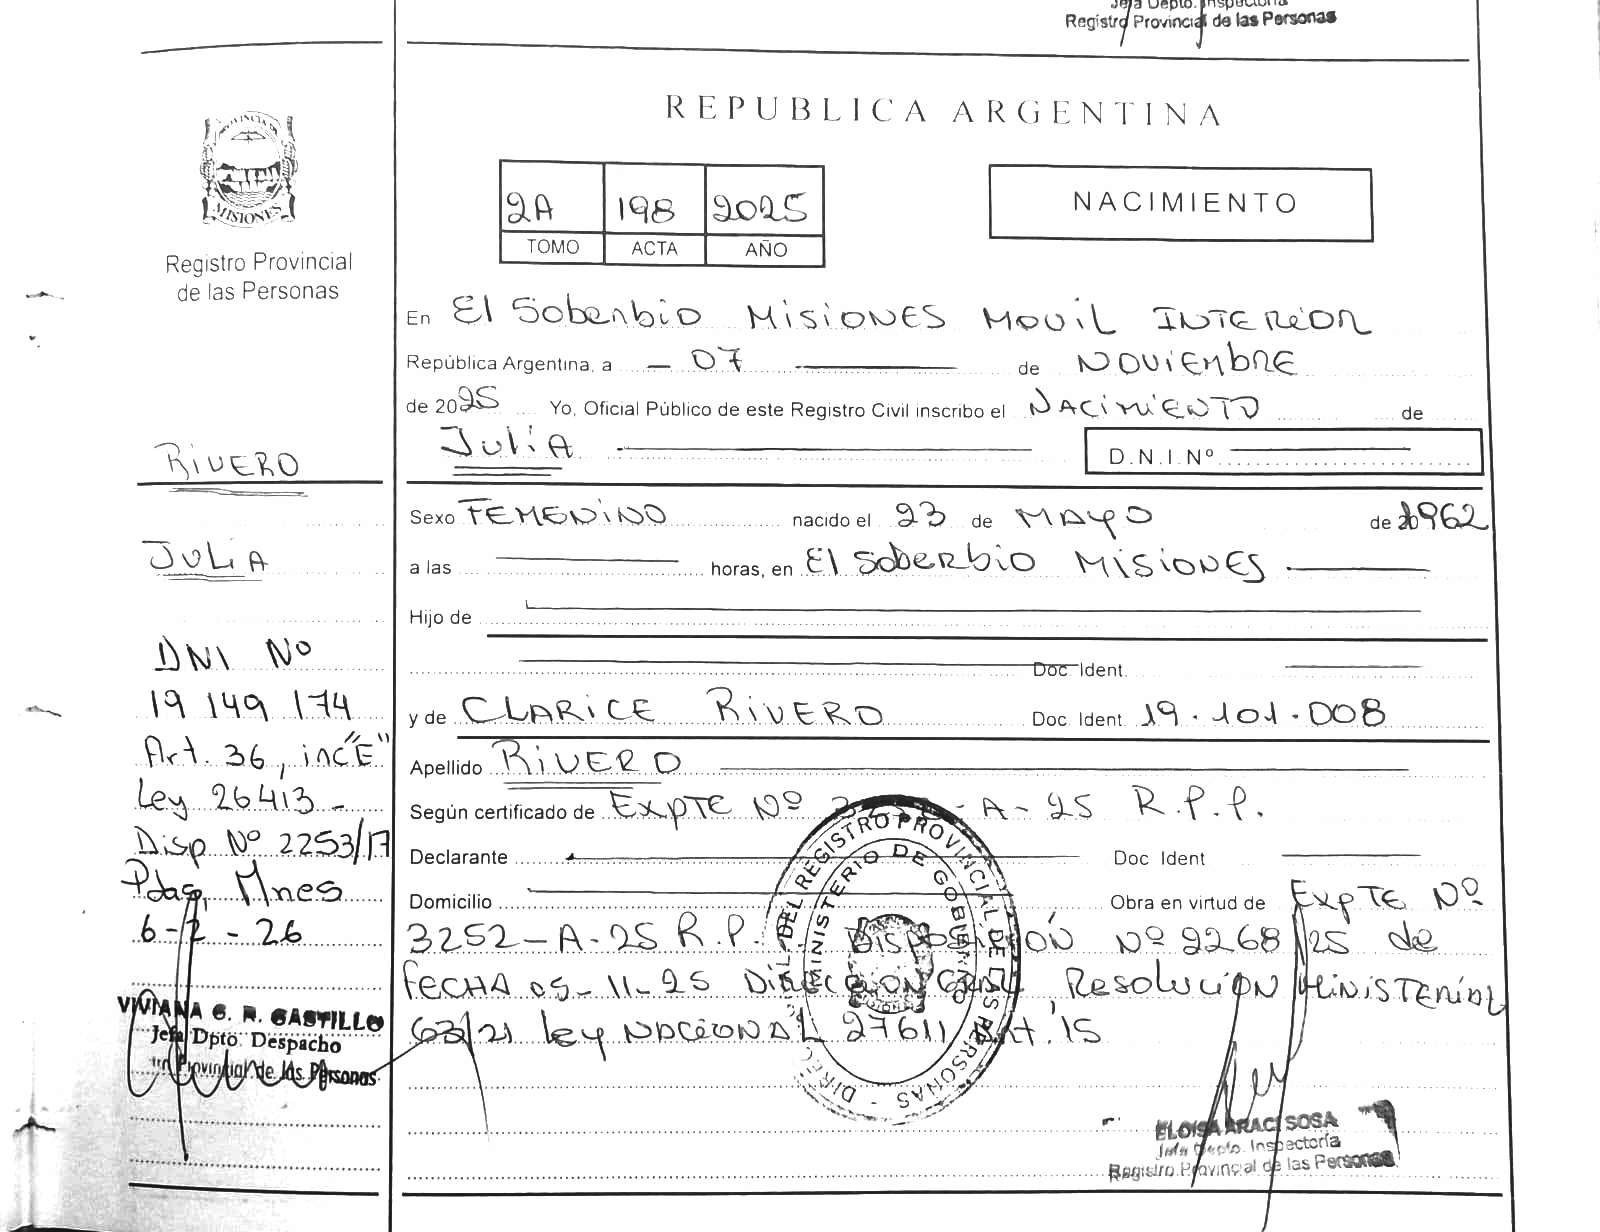 Jefa Depto. Inspectoría
Registro Provincial de las Personas
REPUBLICA ARGENTINA
PROVINCIA DE
MISIONES
Registro Provincial
de las Personas
2A 198 2025
TOMO ACTA AÑO
NACIMIENTO
En El Soberbio Misiones Movil Interior
República Argentina, a - 07 de Noviembre
de 2025 Yo, Oficial Público de este Registro Civil inscribo el Nacimiento de
Julia
D.N.I.Nº
Sexo Femenino nacido el 23 de Mayo de 1962
a las horas, en El Soberbio Misiones
Hijo de
Doc Ident.
y de CLARICE RIVERO Doc Ident 19.101.008
Apellido Rivero
Según certificado de Expte Nº 3252-A-25 R.P.P.
Declarante Doc Ident
Domicilio Obra en virtud de Expte Nº
3252-A-25 R.P.P. Disposición Nº 2268/25 de
fecha 05-11-25 Dirección Gral, Resolución Ministerial
63/21 ley Nacional 27611 Art. 15
RIVERO
JULIA
DNI Nº
19 149 174
Art. 36, inc "E"
Ley 26413 -
Disp Nº 2253/17
Pdas, Mnes
6-2-26
VIVIANA G. R. CASTILLO
Jefa Dpto. Despacho
Provincial de las Personas
DIRECCION DEL REGISTRO PROVINCIAL DE LAS PERSONAS -
MINISTERIO DE GOBIERNO
MISIONES
ELOISA ARACI SOSA
Jefa Depto. Inspectoría
Registro Provincial de las Personas